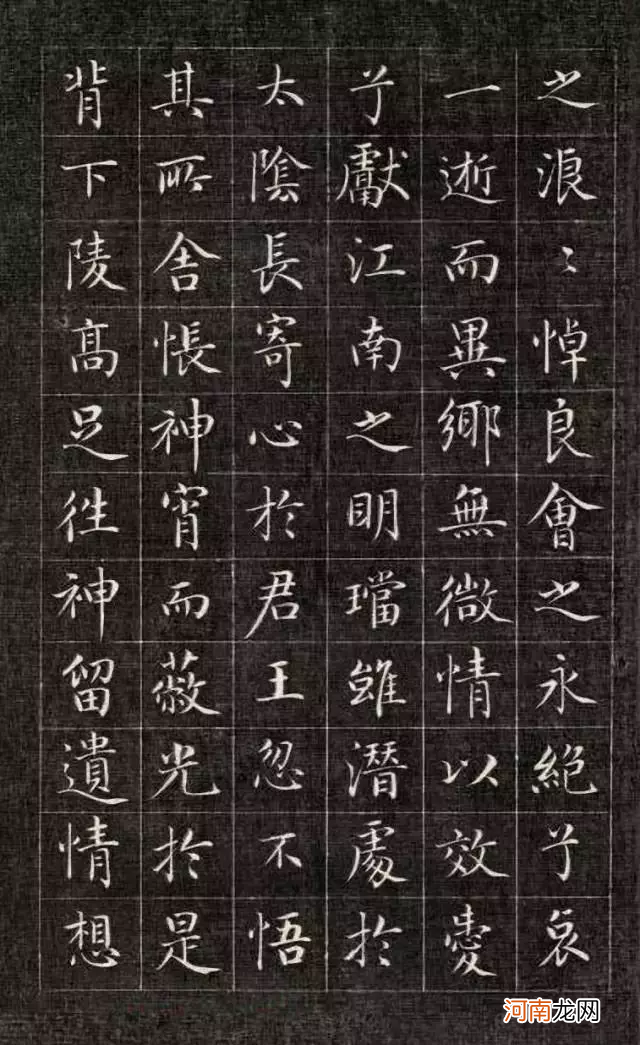 之浪〻悼良會之永絕兮哀
一逝而異鄉無微情以效愛
兮獻江南之明璫雖潛處於
太陰長寄心於君王忽不悟
其所舍悵神宵而蔽光於是
背下陵高足往神留遺情想
河南龙网